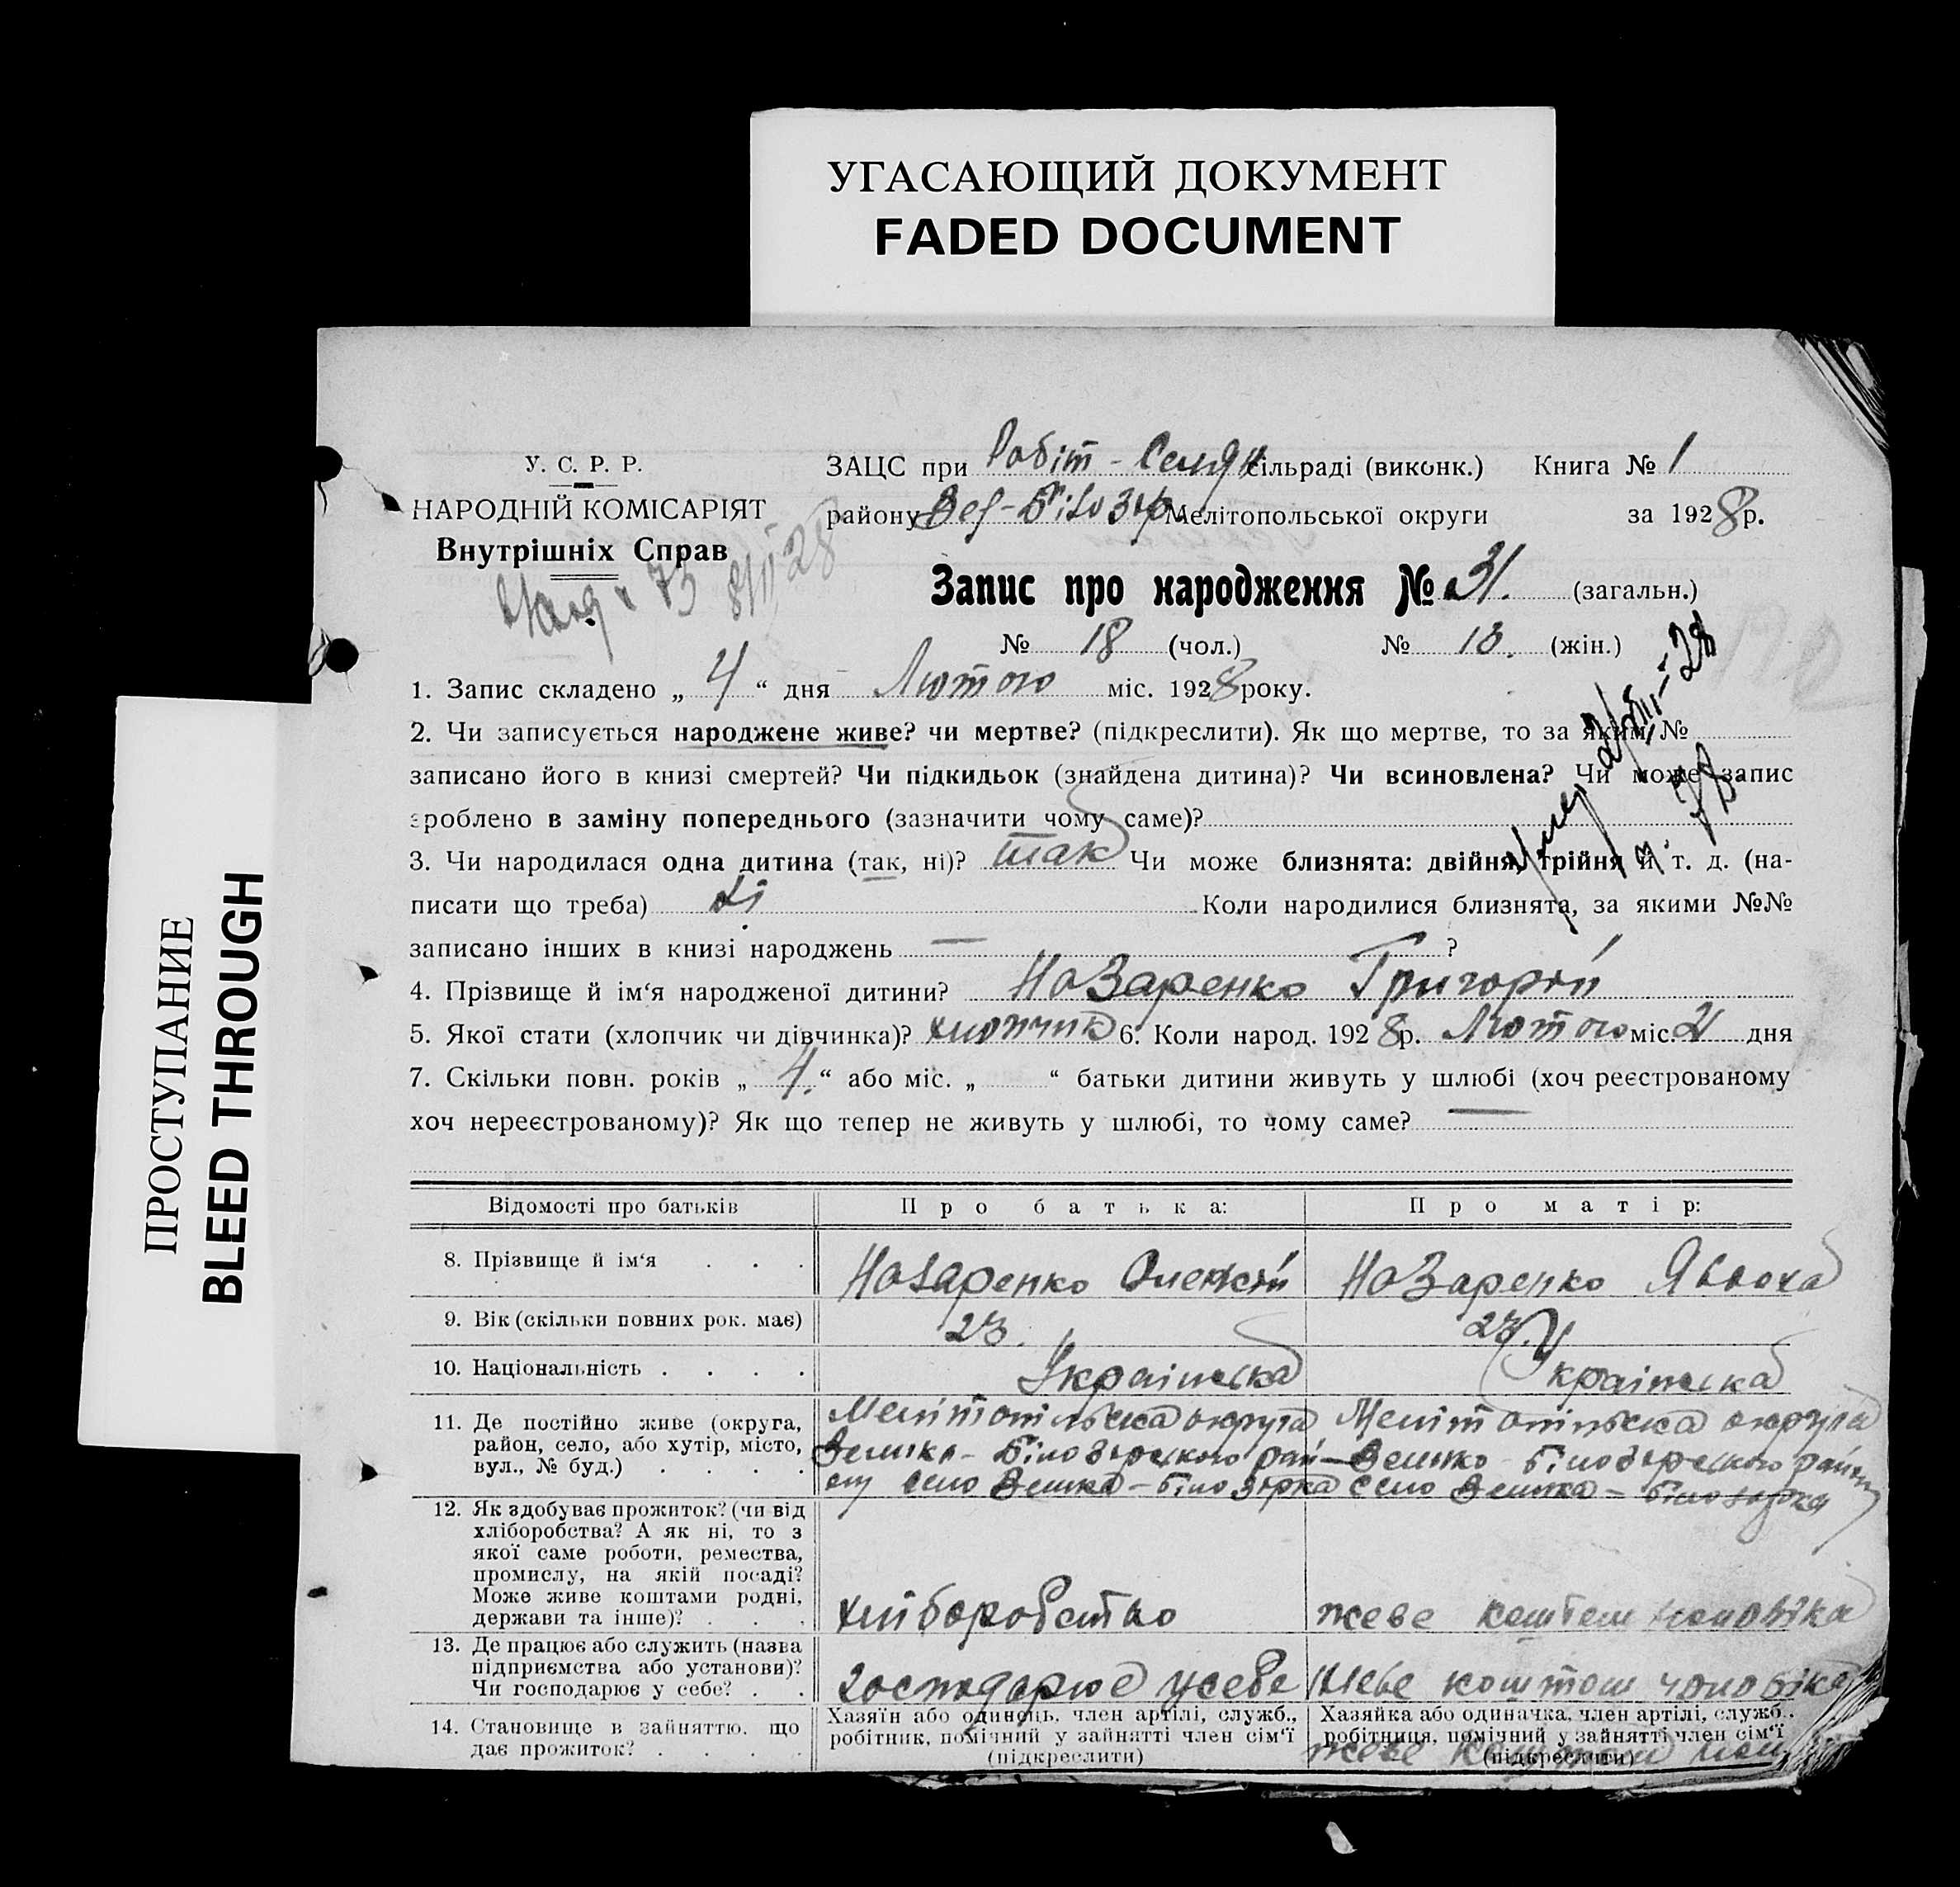 УГАСАЮЩИЙ ДОКУМЕНТ
FADED DOCUMENT
ПРОСТУПАНИЕ
BLEED THROUGH
У. С. Р. Р.
НАРОДНІЙ КОМІСАРІЯТ
Внутрішніх Справ
ЗАЦС при Робіт - Селян сільраді (виконк.) Книга № 1
району Вел-Білозер. Мелітопольської округи за 1928 р.
Запис про народження № 31. (загальн.)
№ 18 (чол.) № 13. (жін.)
1. Запис складено „ 4 “ дня Лютого міс. 1928 року.
2. Чи записується народжене живе? чи мертве? (підкреслити). Як що мертве, то за яким №
записано його в книзі смертей? Чи підкидьок (знайдена дитина)? Чи всиновлена? Чи може запис
зроблено в заміну попереднього (зазначити чому саме)?
3. Чи народилася одна дитина (так, ні)? так Чи може близнята: двійня, трійня й т. д. (на-
писати що треба) Ні Коли народилися близнята, за якими №№
записано інших в книзі народжень — ?
4. Прізвище й ім‘я народженої дитини? Назаренко Григорій
5. Якої стати (хлопчик чи дівчинка)? хлопчик 6. Коли народ. 1928 р. Лютого міс. 2 дня
7. Скільки повн. років „ 4. “ або міс. „ “ батьки дитини живуть у шлюбі (хоч реєстрованому
хоч нереєстрованому)? Як що тепер не живуть у шлюбі, то чому саме? —
Відомості про батьків Про батька: Про матір:
8. Прізвище й ім‘я . . . Назаренко Олексій Назаренко Явдоха
9. Вік (скільки повних рок. має) 23. 23.
10. Національність . . . . Українська Українська
11. Де постійно живе (округа, район, село, або хутір, місто, вул., № буд.) . . . .
Мелітопільська округа
Велика - Білозерського рай-
ону село Велика - Білозірка
Мелітопільська округа
Велико - Білозерського району
село Велика - Білозірка
12. Як здобуває прожиток? (чи від
хліборобства? А як ні, то з
якої саме роботи, ремества,
промислу, на якій посаді?
Може живе коштами родні,
держави та інше)? . . .
хліборобство
жеве коштом чоловіка
13. Де працює або служить (назва
підприємства або установи)?
Чи господарює у себе? . .
господарює усебе
жеве коштом чоловіка
14. Становище в зайняттю, що
дає прожиток? . . . .
Хазяїн або одинець, член артілі, служб.,
робітник, помічний у зайнятті член сім‘ї
(підкреслити)
Хазяйка або одиначка, член артілі, служб.,
робітниця, помічний у зайнятті член сім‘ї
(підкреслити)
жеве коштом